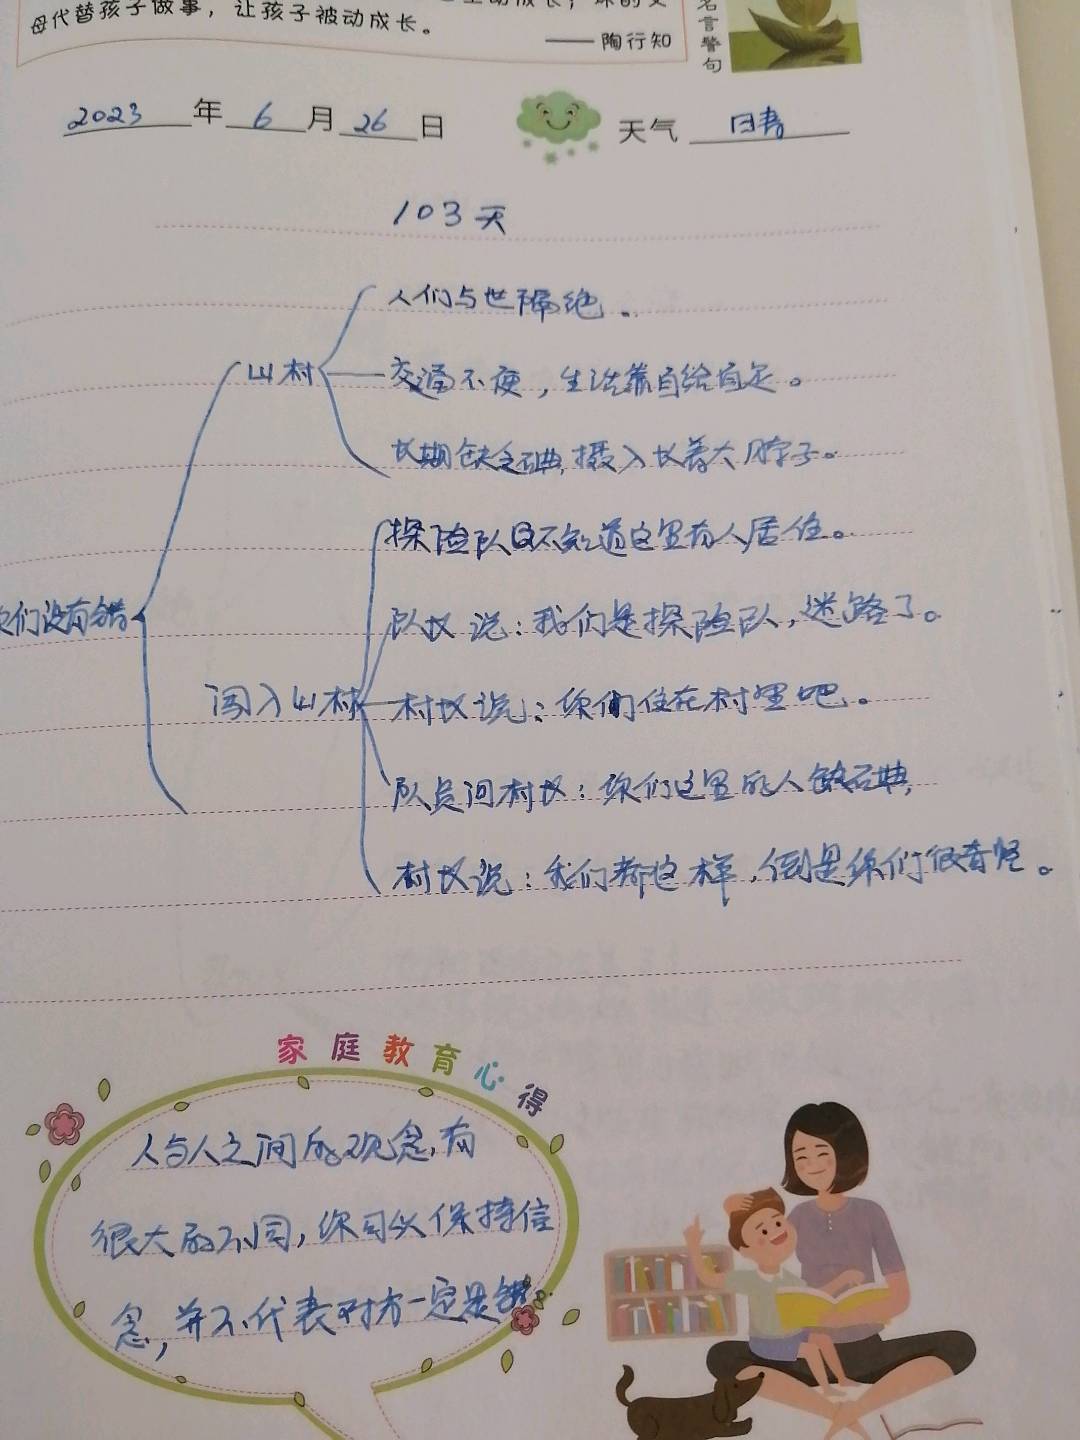 母代替孩子做事，让孩子被动成长。
——陶行知
名言警句
2023年6月26日 天气 晴
103天
人们与世隔绝。
山村
交通不便，生活靠自给自足。
长期缺乏碘，摄入长着大脖子。
探险队因不知道这里有人居住。
们没有错
队长说：我们是探险队，迷路了。
闯入山村
村长说：你们住在村里吧。
队员问村长：你们这里的人缺碘，
村长说：我们都这样，倒是你们很奇怪。
家庭教育心得
人与人之间的观念，有
很大的不同，你可以保持信
念，并不代表对方一定是错